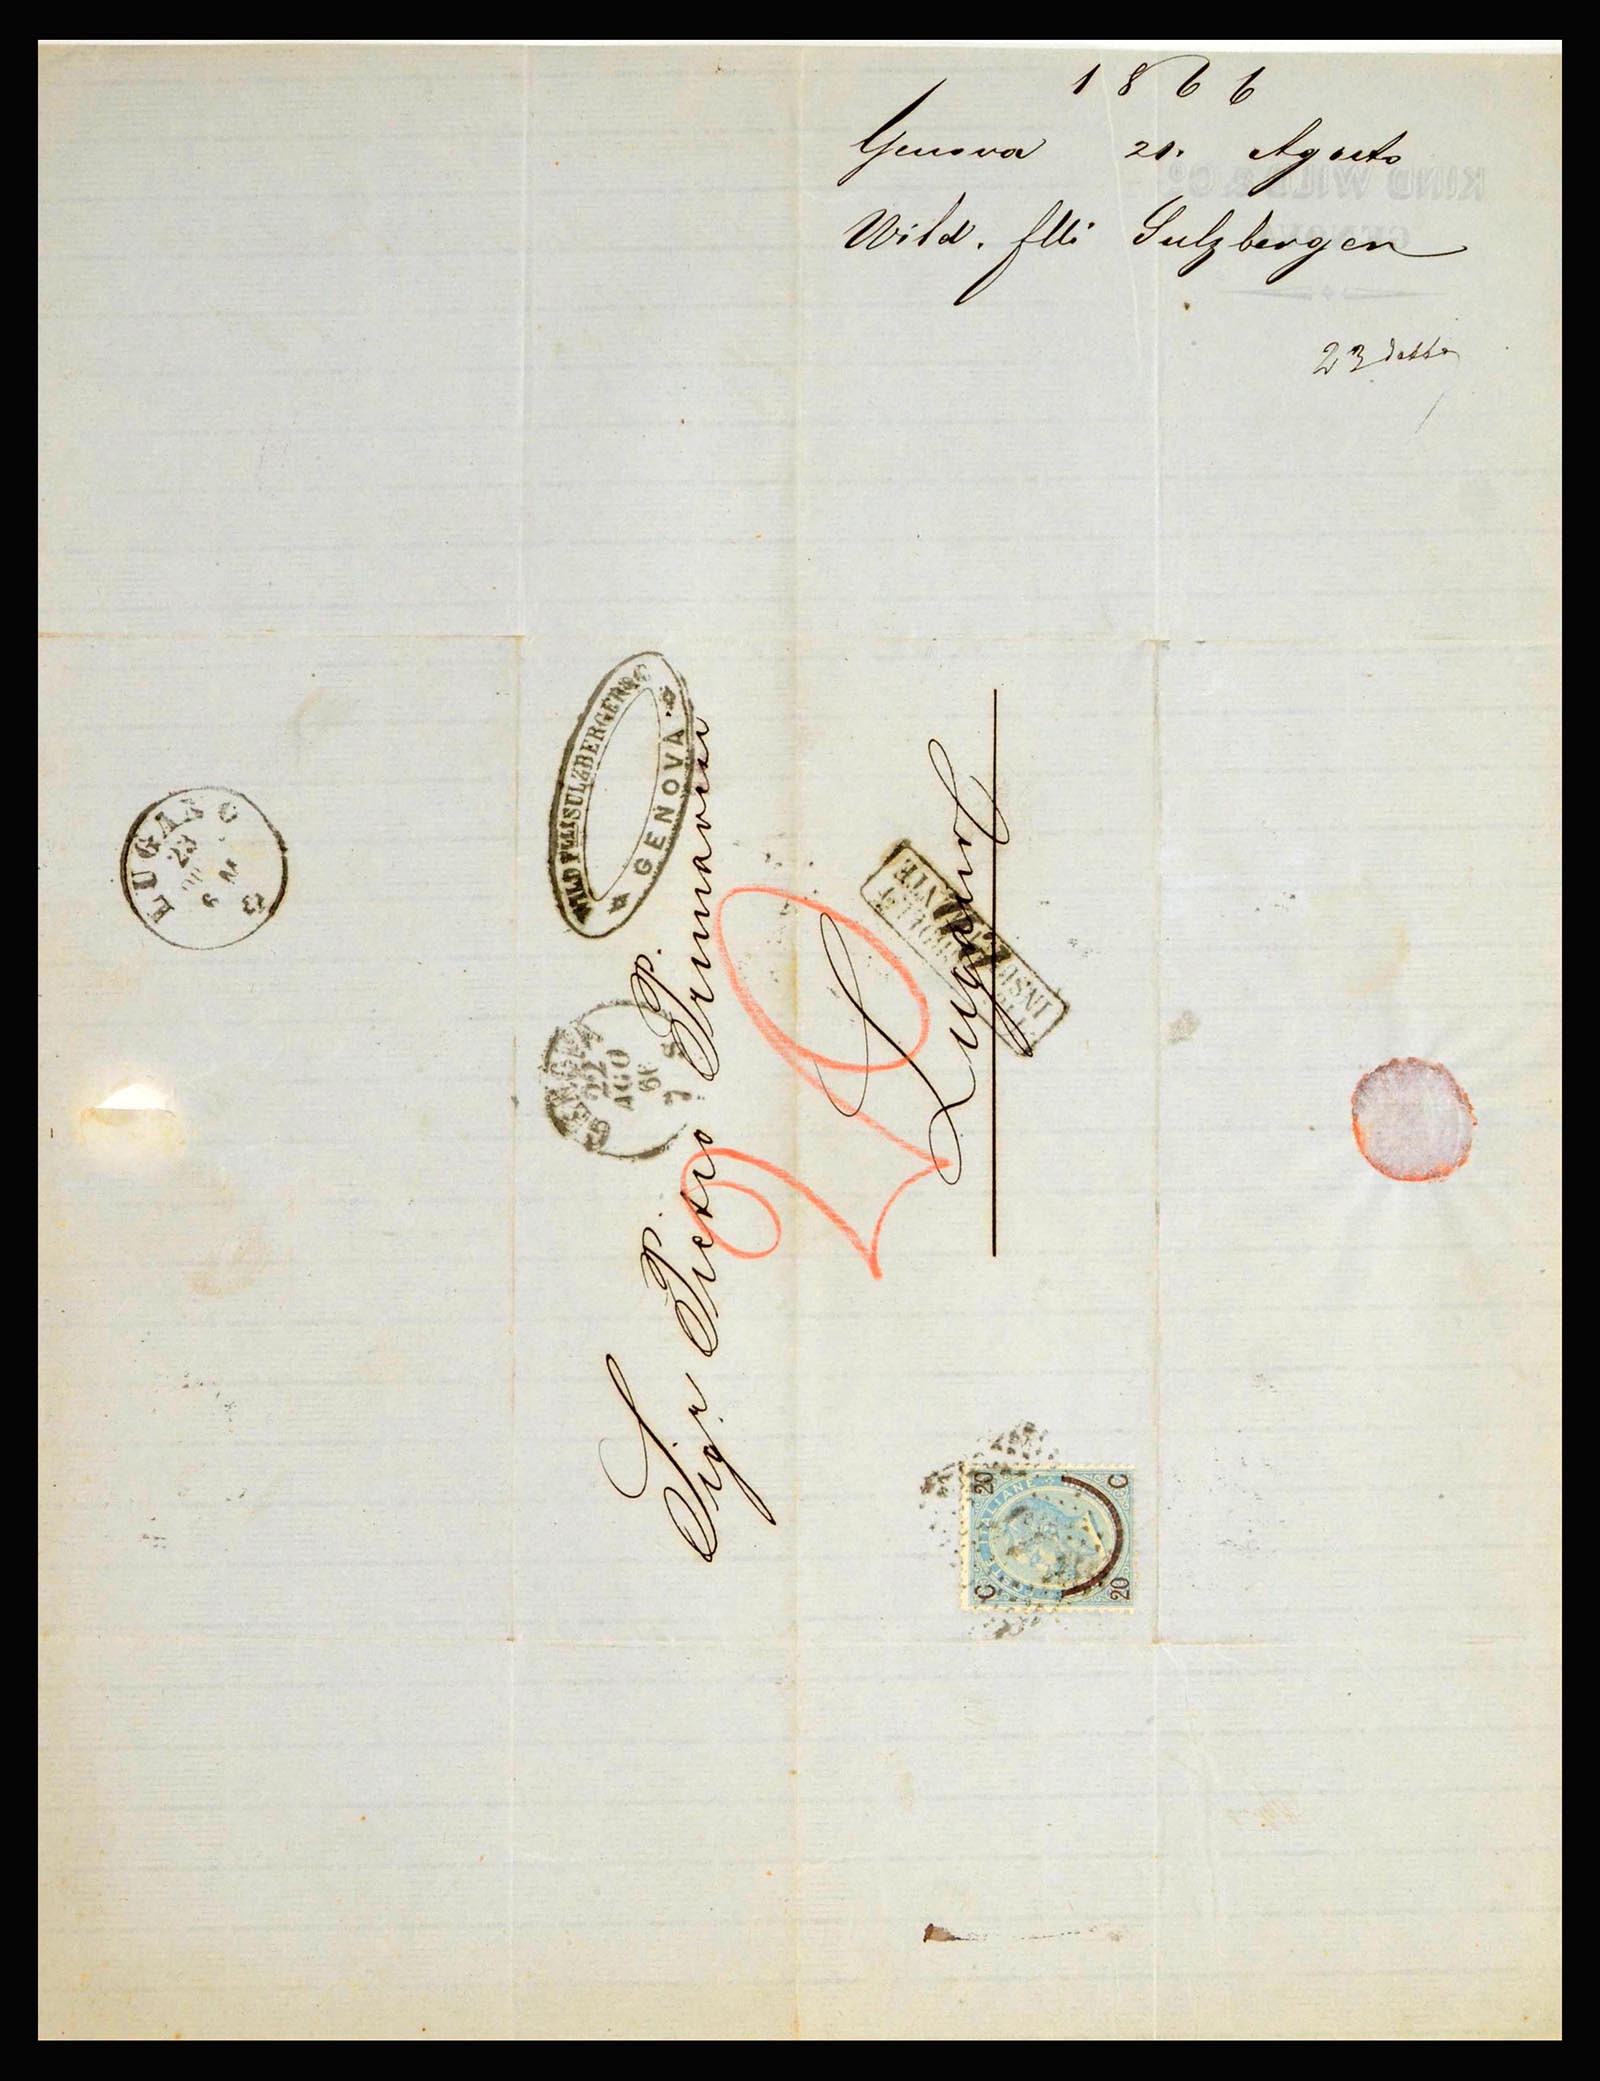 1866
Genova 21. Agosto
Wild. flli Sulzberger
23 detto
KIND WILD & Co
GENOVA
WILD FLLI SULZBERGER & C
GENOVA
LUGANO
23
6 M
GENOVA
22
AGO
66
7 S
Sigr Pietro Primavesi
Lugano
20
INSUFFICIENTE
C 20
POSTE ITALIANE
20 C